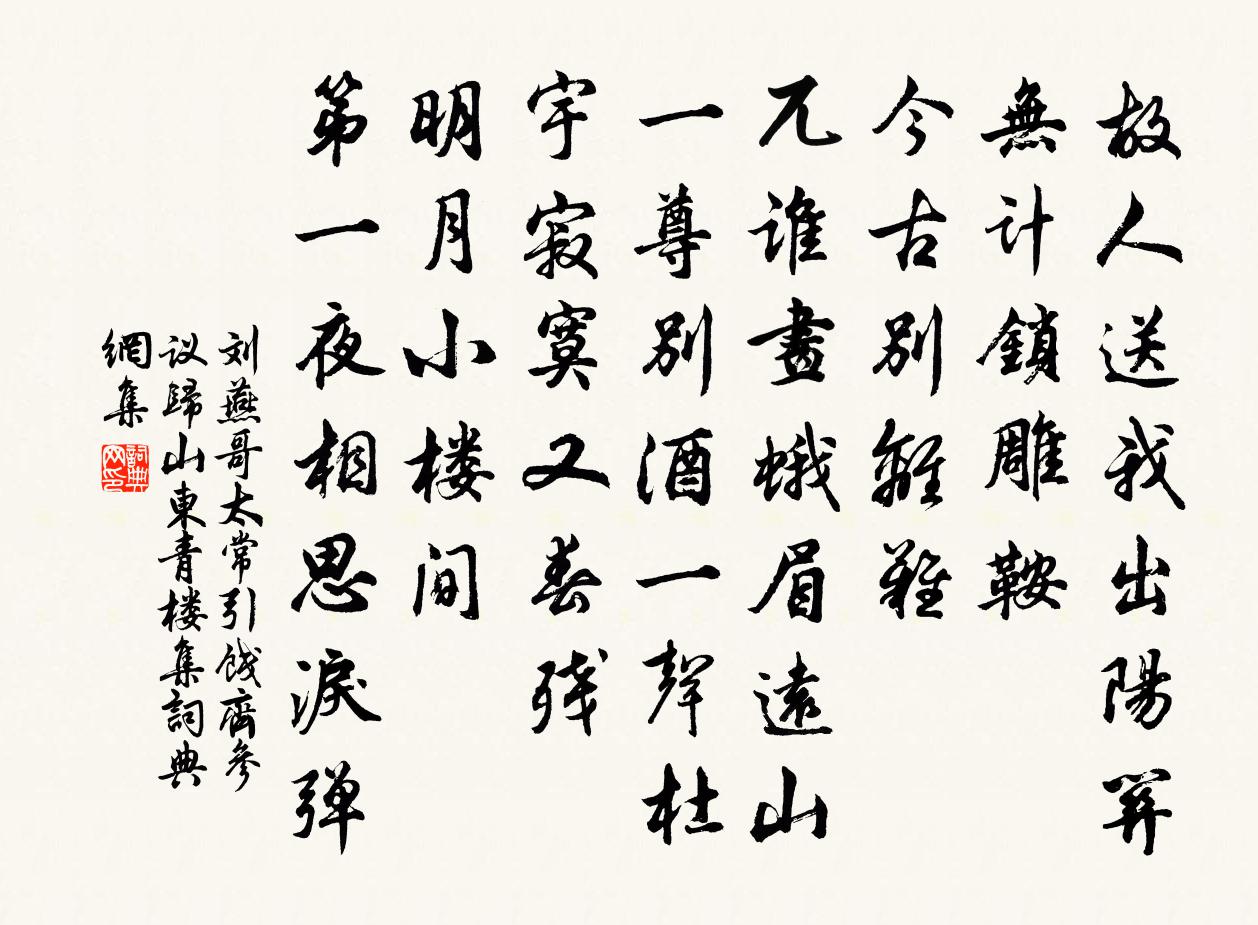 故人送我出陽關
無計鎖雕鞍
今古別離難
兀誰畫蛾眉遠山
一尊別酒一聲杜
宇寂寞又春殘
明月小楼間
第一夜相思淚弹
刘燕哥太常引餞齊參
议歸山東青楼集詞典
網集
詞典网印